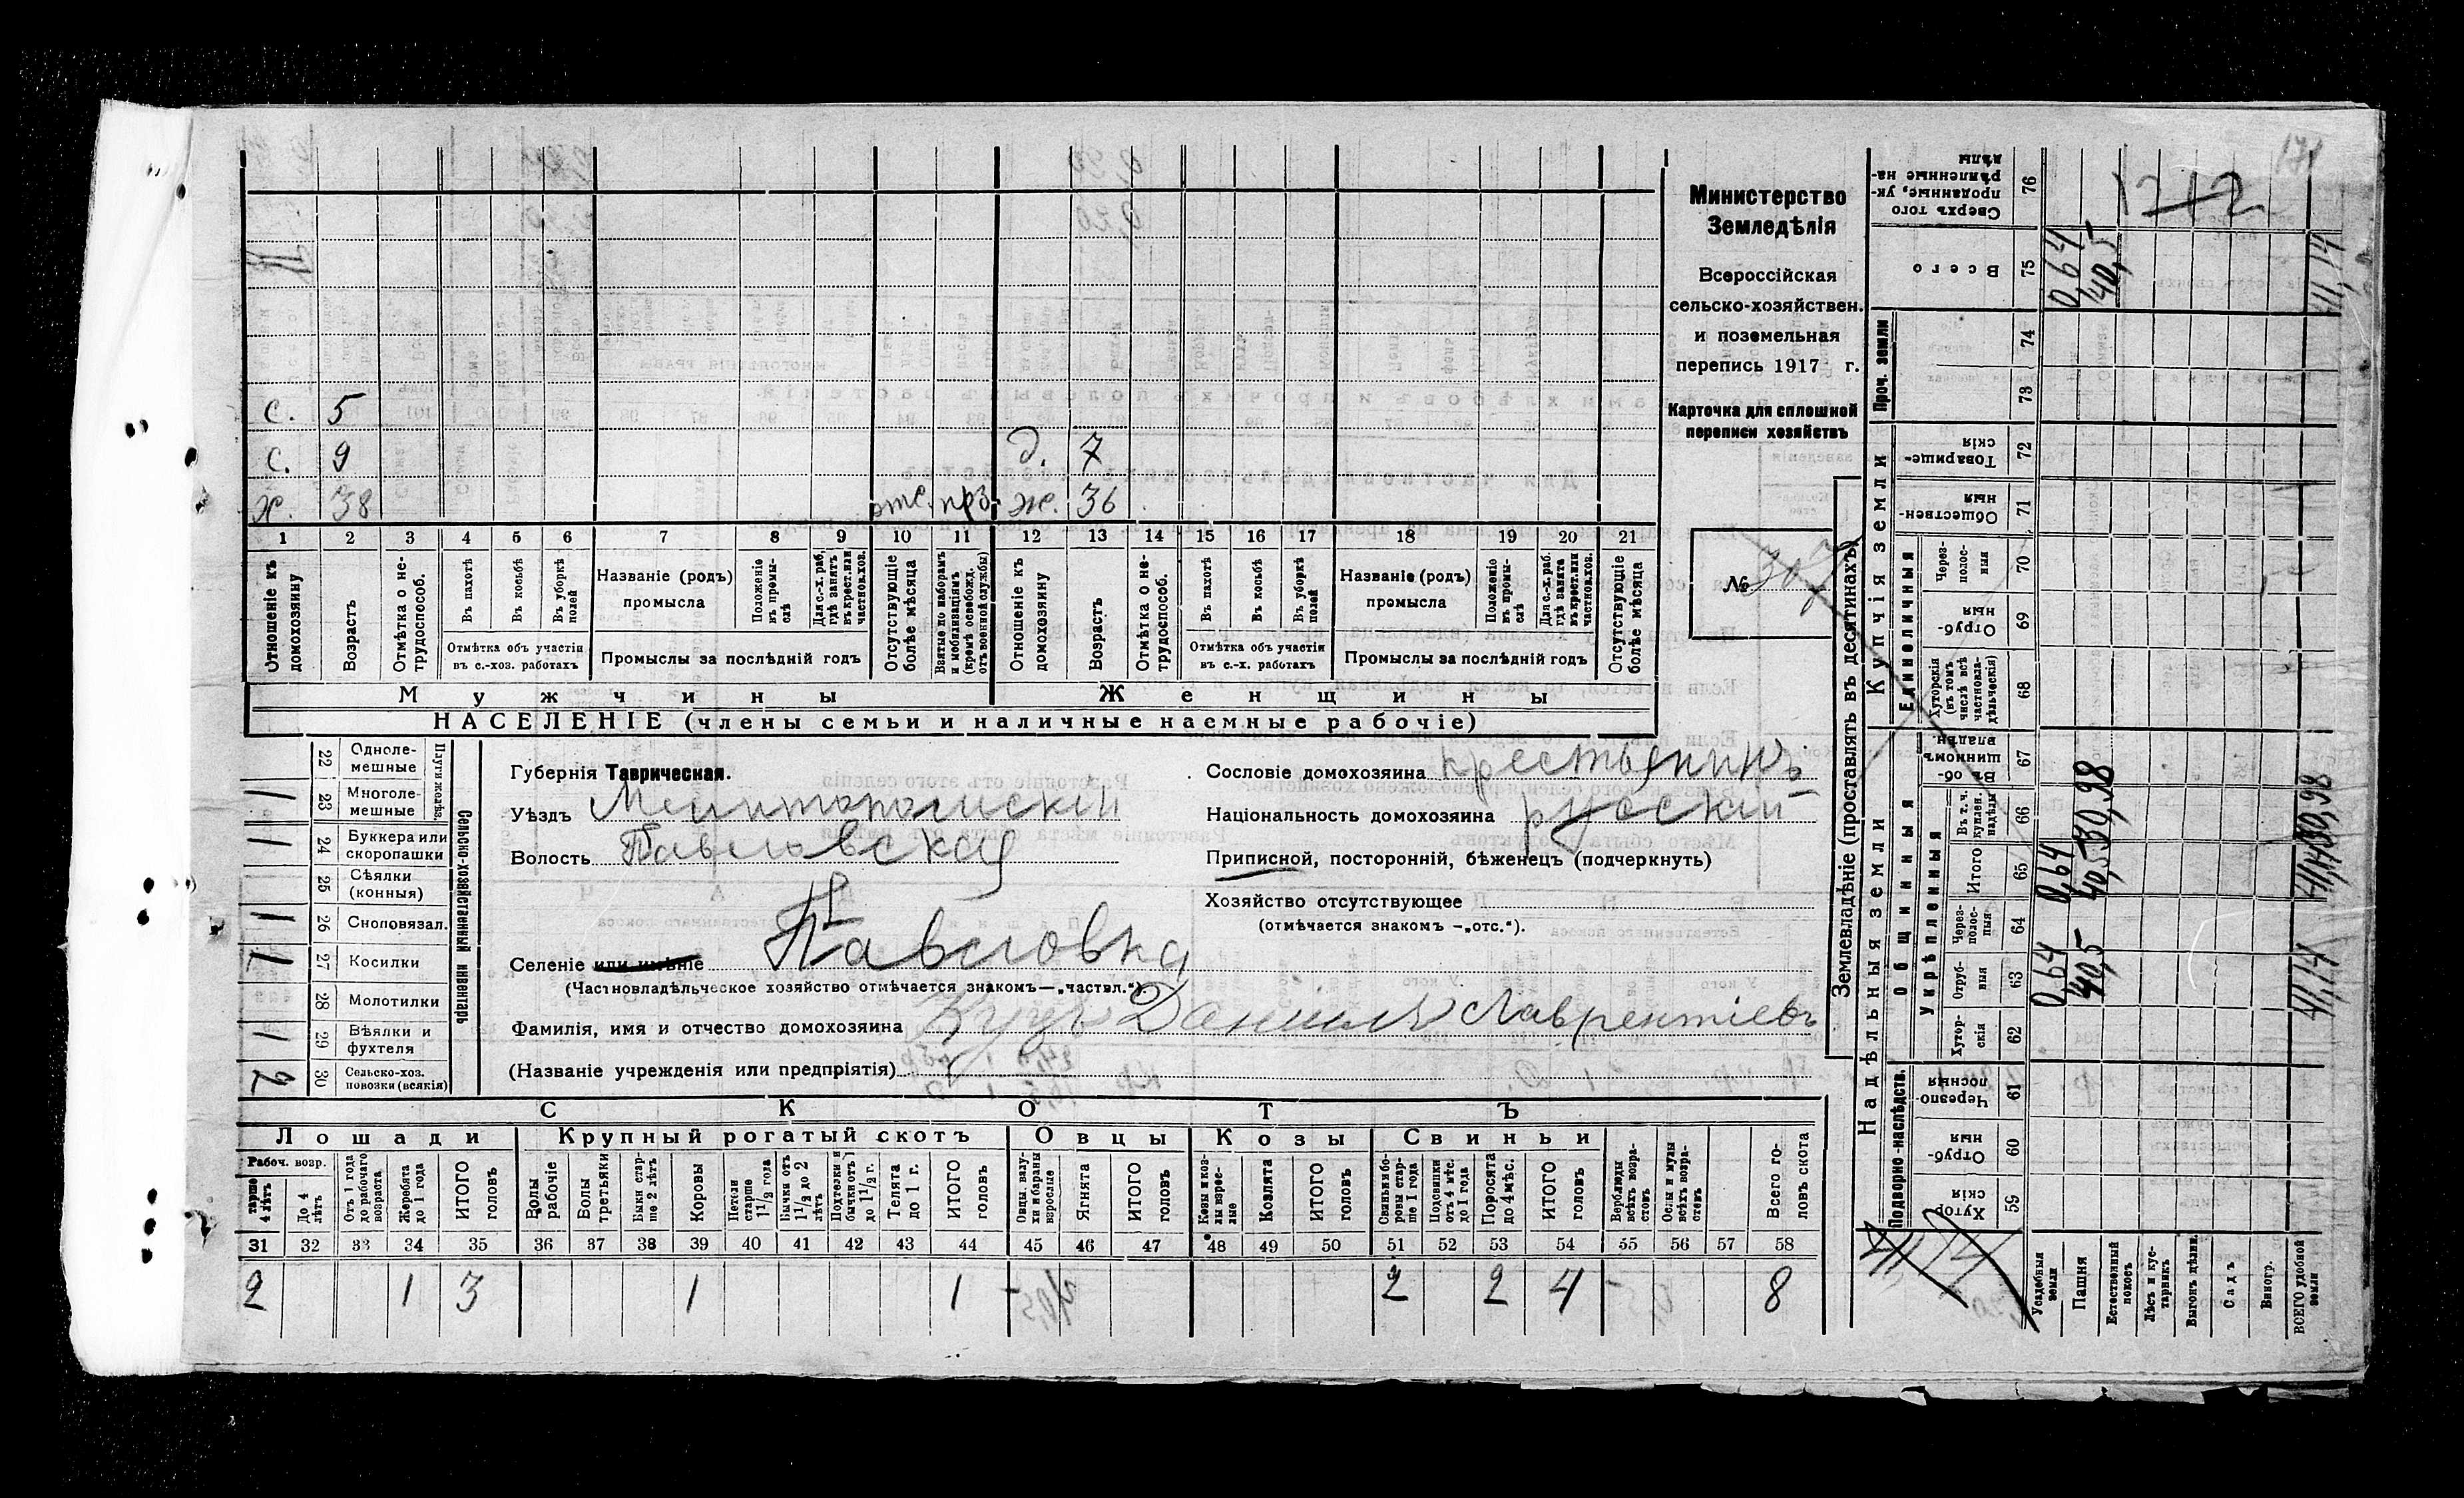 171
1212
Министерство
Земледѣлія
Всероссійская
сельско-хозяйствен.
и поземельная
перепись 1917 г.
Карточка для сплошной
переписи хозяйствъ
№ 307
с. 5
с. 9 д. 7
х. 38 жс. прз. ж. 36
1 2 3 4 5 6 7 8 9 10 11 12 13 14 15 16 17 18 19 20 21
Отношеніе къ домохозяину
Возрастъ
Отмѣтка о нетрудоспособ.
Въ пахотѣ
Въ косьбѣ
Въ уборкѣ полей
Отмѣтка объ участіи
въ с.-хоз. работахъ
Названіе (родъ)
промысла
Положеніе въ промыслѣ
Для с.-х. раб, гдѣ занятъ въ крест. или частнов. хоз.
Промыслы за послѣдній годъ
Отсутствующіе болѣе мѣсяца
Взятые по наборамъ и мобилизаціямъ (кромѣ освобожд. отъ военной службы)
Отношеніе къ домохозяину
Возрастъ
Отмѣтка о нетрудоспособ.
Въ пахотѣ
Въ косьбѣ
Въ уборкѣ полей
Отмѣтка объ участіи
въ с.-х. работахъ
Названіе (родъ)
промысла
Положеніе въ промыслѣ
Для с.-х. раб. гдѣ занята въ крест. или частнов. хоз.
Промыслы за послѣдній годъ
Отсутствующіе болѣе мѣсяца
Мужчины Женщины
НАСЕЛЕНІЕ (члены семьи и наличные наемные рабочіе)
Сельско-хозяйственный инвентарь
22 Однолемешные
1 23 Многолемешные
1 24 Буккера или скоропашки
25 Сѣялки (конныя)
1 26 Сноповязал.
1 27 Косилки
28 Молотилки
1 29 Вѣялки и фухтеля
2 30 Сельско-хоз. повозки (всякія)
Губернія Таврическая.
Уѣздъ Мелитопольскій
Волость Павловская
Селеніе или имѣніе Павловка
(Частновладѣльческое хозяйство отмѣчается знакомъ—„частвл.“).
Фамилія, имя и отчество домохозяина Куцъ Даніилъ Лаврентіевъ
(Названіе учрежденія или предпріятія)
Сословіе домохозяина крестьянинъ
Національность домохозяина русскій
Приписной, посторонній, бѣженецъ (подчеркнуть)
Хозяйство отсутствующее
(отмѣчается знакомъ —„отс.“).
СКОТЪ
Лошади Крупный рогатый скотъ Овцы Козы Свиньи
Рабоч. возр.
старше 4 лѣтъ
До 4 лѣтъ
Отъ 1 года до рабочаго возраста
Жеребята до 1 года
ИТОГО головъ
Волы рабочіе
Волы третьяки
Быки старше 2 лѣтъ
Коровы
Петели старше 1 1/2 года
Бычки отъ 1 1/2 до 2 лѣтъ
Подтелки и бычки отъ 1 до 1 1/2 г.
Телята до 1 г.
ИТОГО головъ
Овцы, валухи и бараны взрослые
Ягнята
ИТОГО головъ
Козы и козлы взрослые
Козлята
ИТОГО головъ
Свиньи и боровы старше 1 года
Подсвинки отъ 4 мѣс. до 1 года
Поросята до 4 мѣс.
ИТОГО головъ
Верблюды всѣхъ возрастовъ
Ослы и мулы всѣхъ возрастовъ
Всего головъ скота
31 32 33 34 35 36 37 38 39 40 41 42 43 44 45 46 47 48 49 50 51 52 53 54 55 56 57 58
2 1 3 1 1 2 2 4 8
Землевладѣніе (проставлять въ десятинахъ)
Надѣльныя земли
Купчія земли
Проч. земли
Подворно-наслѣдств.
Общинныя
Укрѣпленныя
Единоличныя
Хуторскія 59
Отрубныя 60
Черезполосныя 61
Хуторскія 62
Отрубныя 63
Черезполосныя 64
Итого 65
Въ т. ч. куплен. надѣлы 66
Въ общинномъ владѣн. 67
Хуторскія (въ томъ числѣ всѣ частновладѣльческія) 68
Отрубныя 69
Черезполосныя 70
Общественныя 71
Товарищескія 72
73
74
Всего 75
Сверхъ того проданные, укрѣпленные надѣлы 76
Усадебныя земли 0,64 0,64 0,64
Пашня 40,5 40,5 30,98 40,5
Естественный покосъ
Лѣсъ и кустарникъ
Выгонъ дѣлин.
Садъ
Виногр.
ВСЕГО удобной земли 41,14 41,14 30,98 41,14
41,14